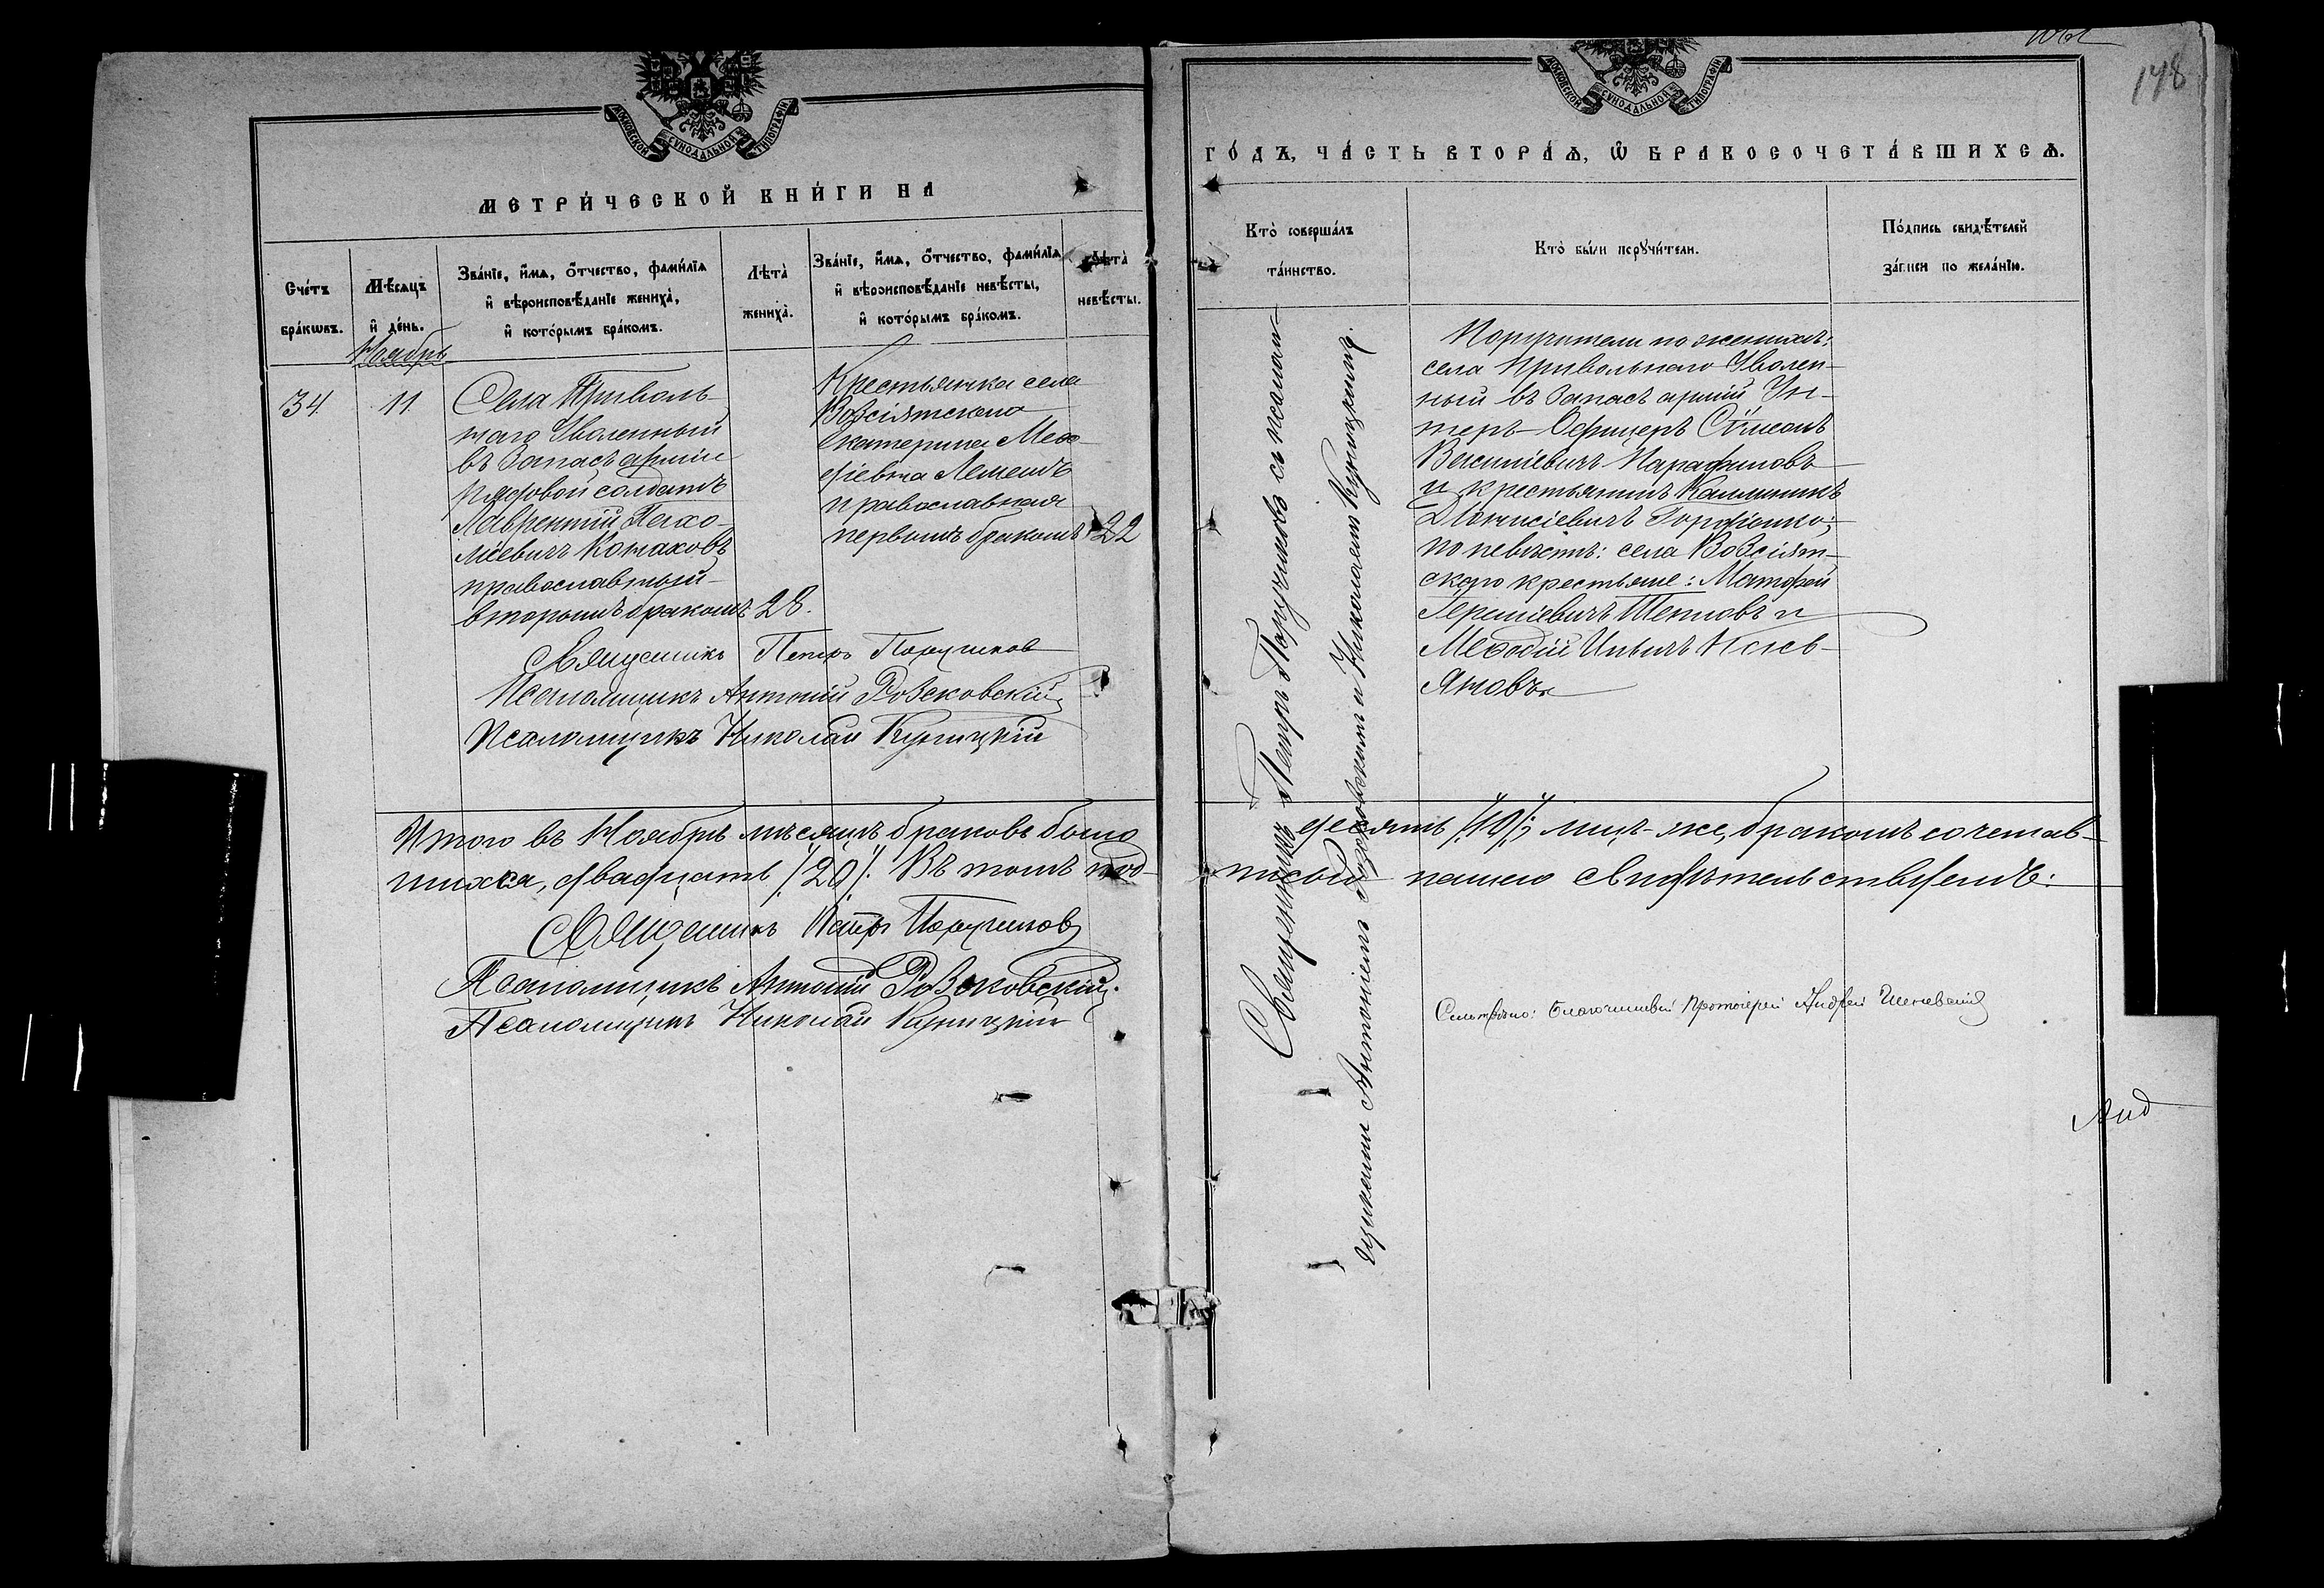 МОСКОВСКОЙ СѴНОДАЛЬНОЙ ТИПОГРАФІИ
МЕТРИ́ЧЕСКОЙ КНИ́ГИ НА
Сче́тъ бра́кѡвъ.
Мѣ́сяцъ и де́нь.
Зва́нїе, и҆́мя, ѻ҆́тчество, фами́лїя
и҆ вѣроисповѣ́данїе жениха̀,
и҆ кото́рымъ бра́комъ.
Лѣта̀ жениха̀.
Зва́нїе, и҆́мя, ѻ҆́тчество, фами́лїя
и҆ вѣроисповѣ́данїе невѣ́сты,
и҆ кото́рымъ бра́комъ.
Лѣта̀ невѣ́сты.
Ноябрь
34.
11.
Села Приволь-
наго Уволенный
въ Запасъ арміи
рядовой солдатъ
Лаврентій Пахо-
міевичъ Комаховъ
православный
вторымъ бракомъ
28.
Крестьянка села
Возсіятскаго
Екатерина Меѳо
діевна Лемешъ
православная
первымъ бракомъ
22
Священникъ Петръ Поручиковъ
Псаломщикъ Антоній Розсковскій
Псаломщикъ Николай Куницкій
Итого въ Ноябрѣ мѣсяцѣ браковъ было
шихся, двадцать /20/. Въ томъ под-
Священникъ Петръ Поручиковъ
Псаломщикъ Антоній Розсковскій.
Псаломщикъ Николай Куницкій
148
МОСКОВСКОЙ СѴНОДАЛЬНОЙ ТИПОГРАФІИ
ГО́ДЪ, ЧА́СТЬ ВТОРА́Я, Ѡ҆ БРАКОСОЧЕТА́ВШИХСЯ.
Кто̀ соверша́лъ
та́инство.
Кто̀ бы́ли порꙋчи́тели.
По́дпись свидѣ́телей
за́писи по жела́нїю.
Священникъ Петръ Поручиковъ съ псалом-
щиками Антоніемъ Розсковскимъ и Николаемъ Куницкимъ.
Поручители по женихѣ:
села Привольнаго Уволен-
ный въ Запасъ арміи Ун-
теръ-Офицеръ Сѵмеонъ
Парафиловъ
и крестьянинъ Каллиникъ
Діонисіевичъ
по невѣстѣ: села Возсіят-
скаго крестьяне: Матфей
и
Меѳодій
десять /10/; лицъ-же, бракомъ сочетав-
писомъ нашею свидѣтельствуемъ:
Смотрѣно: Благочинный Протоіерей Андрей
Анд